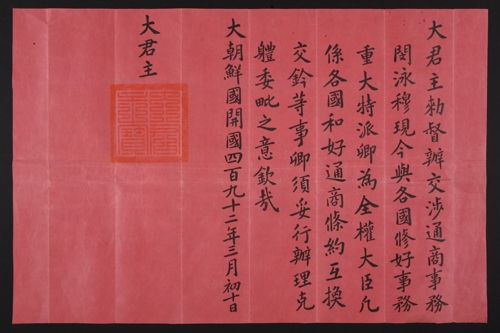 大君主勅督辦交涉通商事務
閔泳穆現今與各國修好事務
重大特派卿為全權大臣凡
係各國和好通商條約互換
交鈐等事卿須妥行辦理克
軆委毗之意欽哉
大朝鮮國開國四百九十二年三月初十日
大君主